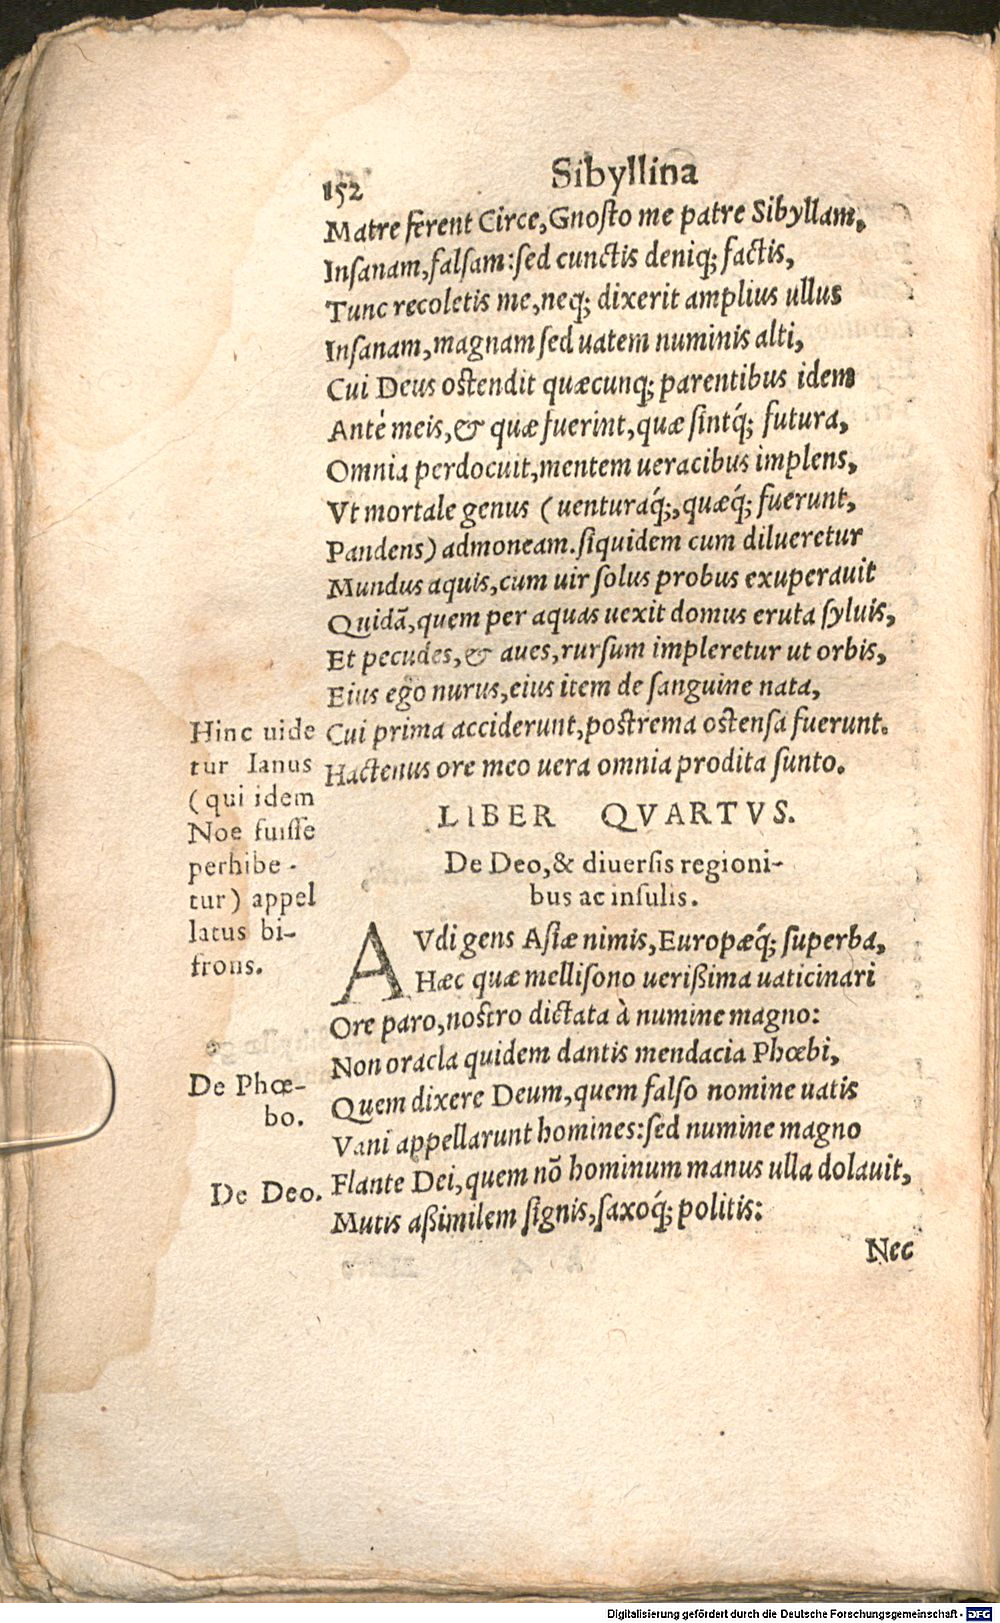 152 Sibyllina
Matre ferent Circe, Gnosto me patre Sibyllam,
Insanam, falsam: sed cunctis deniq; factis,
Tunc recoletis me, neq; dixerit amplius ullus
Insanam, magnam sed uatem numinis alti,
Cui Deus ostendit quæcunq; parentibus idem
Antè meis, & quæ fuerint, quæ sintq́; futura,
Omnia perdocuit, mentem ueracibus implens,
Vt mortale genus (uenturaq́;, quæq́; fuerunt,
Pandens) admoneam. siquidem cum dilueretur
Mundus aquis, cum uir solus probus exuperauit
Quidā, quem per aquas uexit domus eruta syluis,
Et pecudes, & aues, rursum impleretur ut orbis,
Eius ego nurus, eius item de sanguine nata,
Cui prima acciderunt, postrema ostensa fuerunt.
Hactenus ore meo uera omnia prodita sunto.
Hinc uide
tur Ianus
(qui idem
Noe fuisse
perhibe-
tur) appel
latus bi-
frons.
LIBER QVARTVS.
De Deo, & diuersis regioni-
bus ac insulis.
AVdi gens Asiæ nimis, Europæq́; superba,
Hæc quæ mellisono uerißima uaticinari
Ore paro, nostro dictata à numine magno:
Non oracla quidem dantis mendacia Phœbi,
Quem dixere Deum, quem falso nomine uatis
Vani appellarunt homines: sed numine magno
Flante Dei, quem nō hominum manus ulla dolauit,
Mutis aßimilem signis, saxoq́; politis:
De Phœ-
bo.
De Deo.
Nec
Digitalisierung gefördert durch die Deutsche Forschungsgemeinschaft - DFG